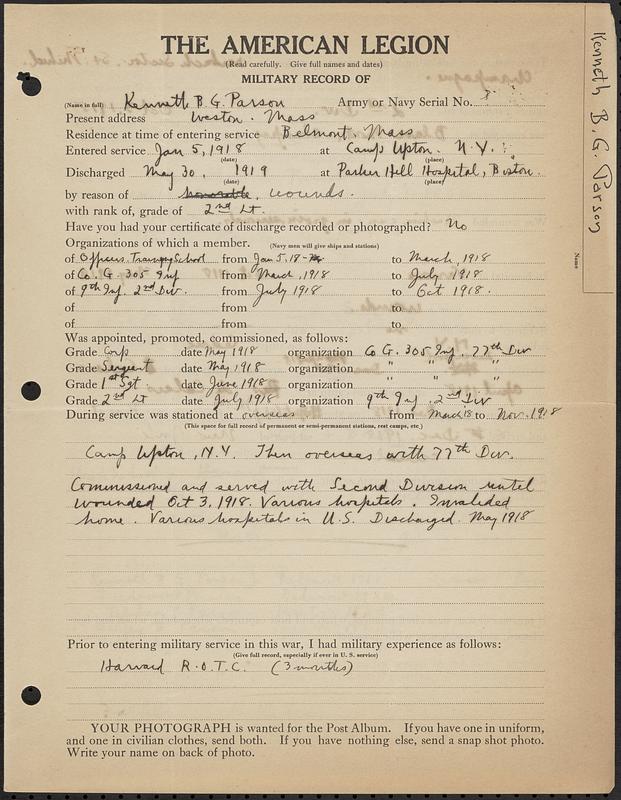 THE AMERICAN LEGION
(Read carefully. Give full names and dates)
MILITARY RECORD OF
(Name in full) Kenneth B. G. Parson Army or Navy Serial No. ?
Present address Weston. Mass
Residence at time of entering service Belmont, Mass
Entered service Jan 5, 1918 at Camp Upton. N.Y.
(date) (place)
Discharged May 30, 1919 at Parker Hill Hospital, Boston.
(date) (place)
by reason of honorable, wounds.
with rank, of grade of 2nd Lt.
Have you had your certificate of discharge recorded or photographed? No
Organizations of which a member. (Navy men will give ships and stations)
of Officers Training School from Jan 5, 18 - to March, 1918
of Co. G. 305 Inf from March, 1918 to July 1918
of 9th Inf. 2nd Div. from July 1918 to Oct 1918.
of from to
of from to
Was appointed, promoted, commissioned, as follows:
Grade Corp date May 1918 organization Co G. 305 Inf, 77th Div
Grade Sergeant date May 1918 organization " " "
Grade 1st Sgt date June 1918 organization " " "
Grade 2nd Lt date July 1918 organization 9th Inf. 2nd Div
During service was stationed at overseas from March 18 to Nov. 1918
(This space for full record of permanent or semi-permanent stations, rest camps, etc.)
Camp Upton, N.Y. Then overseas with 77th Div.
Commissioned and served with Second Division until
wounded Oct 3, 1918. Various hospitals. Invalided
home. Various hospitals in U.S. Discharged. May 1918
Prior to entering military service in this war, I had military experience as follows:
(Give full record, especially if ever in U. S. service)
Harvard R.O.T.C. (3 months)
YOUR PHOTOGRAPH is wanted for the Post Album. If you have one in uniform,
and one in civilian clothes, send both. If you have nothing else, send a snap shot photo.
Write your name on back of photo.
Kenneth B. G. Parson
Name